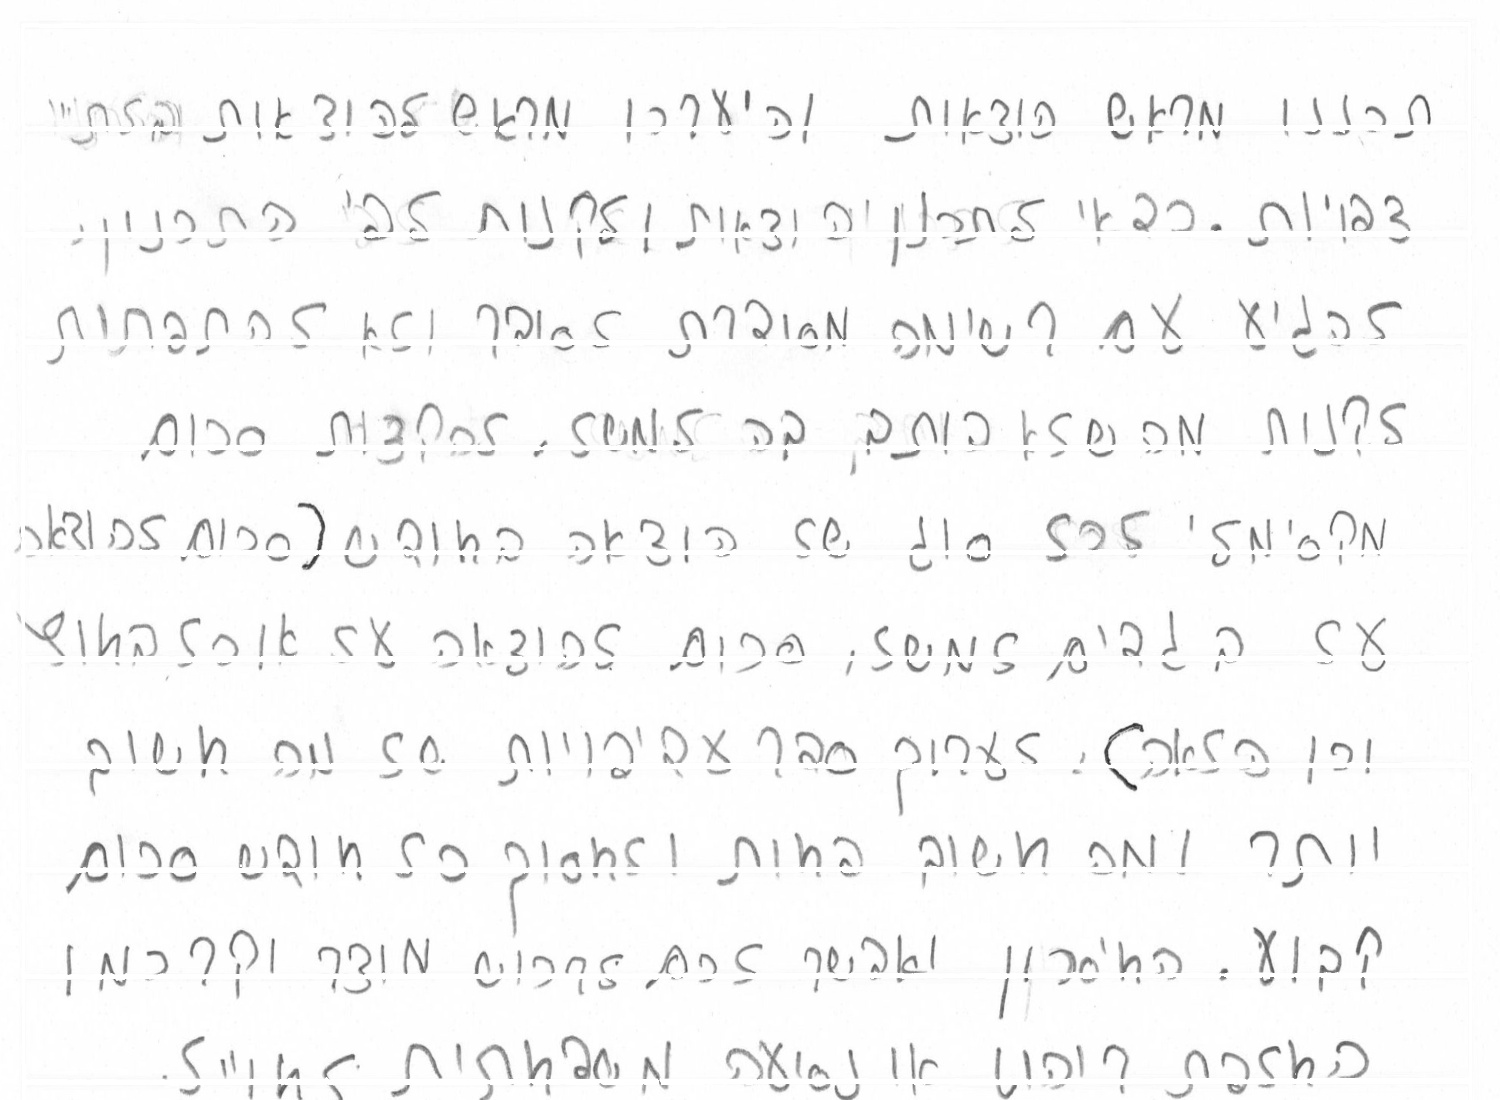 תכננו מראש הוצאות והיערכו מראש להוצאות הבלתי
צפויות. כדאי לתכנן הוצאות ולקנות לפי התכנון.
להגיע עם רשימה מסודרת לסופר ולא להתפתות
לקנות מה שלא כותב בה למשל. להקצות סכום
מקסימלי לכל סוג של הוצאה בחודש (סכום להוצאה
על בגדים למשל, סכום להוצאה על אוכל בחוץ
וכן הלאה). לערוך סדר עדיפויות של מה חשוב
יותר ומה חשוב פחות ולחסוך כל חודש סכום
קבוע. החיסכון יאפשר לכם לרכוש מוצר יקר כמו
החלפת ריהוט או נסיעה משפחתית לחו״ל.